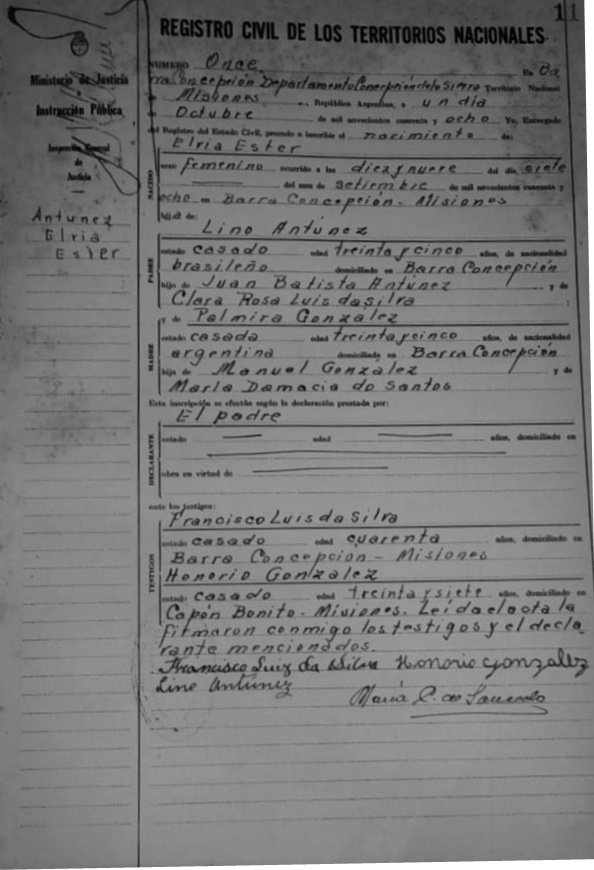 11
REGISTRO CIVIL DE LOS TERRITORIOS NACIONALES
Ministerio de Justicia
e
Instrucción Pública
Inspección General
de
Justicia
Antunez
Elvia
Ester
NUMERO Once En Ba
rra Concepción Departamento Concepción de la Sierra Territorio Nacional
de Misiones, República Argentina, a un dia
de Octubre de mil novecientos cuarenta y ocho Yo, Encargado
del Registro del Estado Civil, procedo a inscribir el nacimiento de:
Elvia Ester
NACIDO
sexo femenino ocurrido a las diez y nueve del día siete
del mes de setiembre de mil novecientos cuarenta y
ocho en Barra Concepción - Misiones
hija de:
Lino Antúnez
PADRE
estado casado edad treinta y cinco años, de nacionalidad
brasileño domiciliado en Barra Concepción
hijo de Juan Batista Antúnez y de
Clara Rosa Luis da Silva
y de Palmira Gonzalez
MADRE
estado casada edad treinta y cinco años, de nacionalidad
argentina domiciliada en Barra Concepción
hija de Manuel Gonzalez y de
María Damacia do Santos
Esta inscripción se efectúa según la declaración prestada por:
El padre
DECLARANTE
estado edad años, domiciliado en
obra en virtud de
ante los testigos:
Francisco Luis da Silva
TESTIGOS
estado casado edad cuarenta años, domiciliado en
Barra Concepcion - Misiones
Honorio González
estado casado edad treinta y siete años, domiciliado en
Capón Bonito - Misiones. Leída el acta la
firmaron conmigo los testigos y el decla
rante mencionados.
Francisco Luiz da Silva Honorio gonzalez
Lino Antúnez
María de